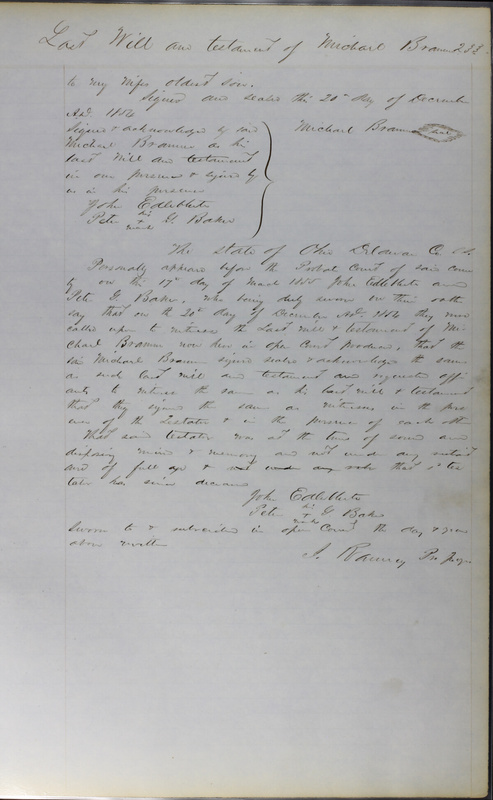 Last Will and testament of Michael Braumn 233
to my Wifes oldest son.
Signed and sealed this 20th day of December
A.D. 1854
Signed & acknowledged by said Michael Braumn seal
Michael Braumn as his
last Will and testament
in our presence & signed by
us in his presence
John Edlebleute
his
Peter + G. Baker
mark
The State of Ohio Delaware Co. SS.
Personally appeared before the Probate Court of said coun
ty on this 17th day of March 1855 John Edlebleute and
Peter G. Baker, who being duly sworn on their oath
say that on the 20th day of December A.D. 1854 they were
called upon to witness the Last will & testament of Mi
chael Braumn now here in open Court produced, that the
said Michael Braumn signed sealed & acknowledged the same
as such last will and testament and requested affi
ants to witness the same as his last will & testament
that they signed the same as witnesses in the pres
ence of the Testator & in the presence of each other
That said testator was at the time of sound and
disposing mind & memory and not under any restraint
and of full age & under any that s tes
tator has since deceased
John Edlebleute
his
Peter + G Baker
mark
Sworn to & subscribed in open Court the day & year
above written
J. Ranney Pro Judge